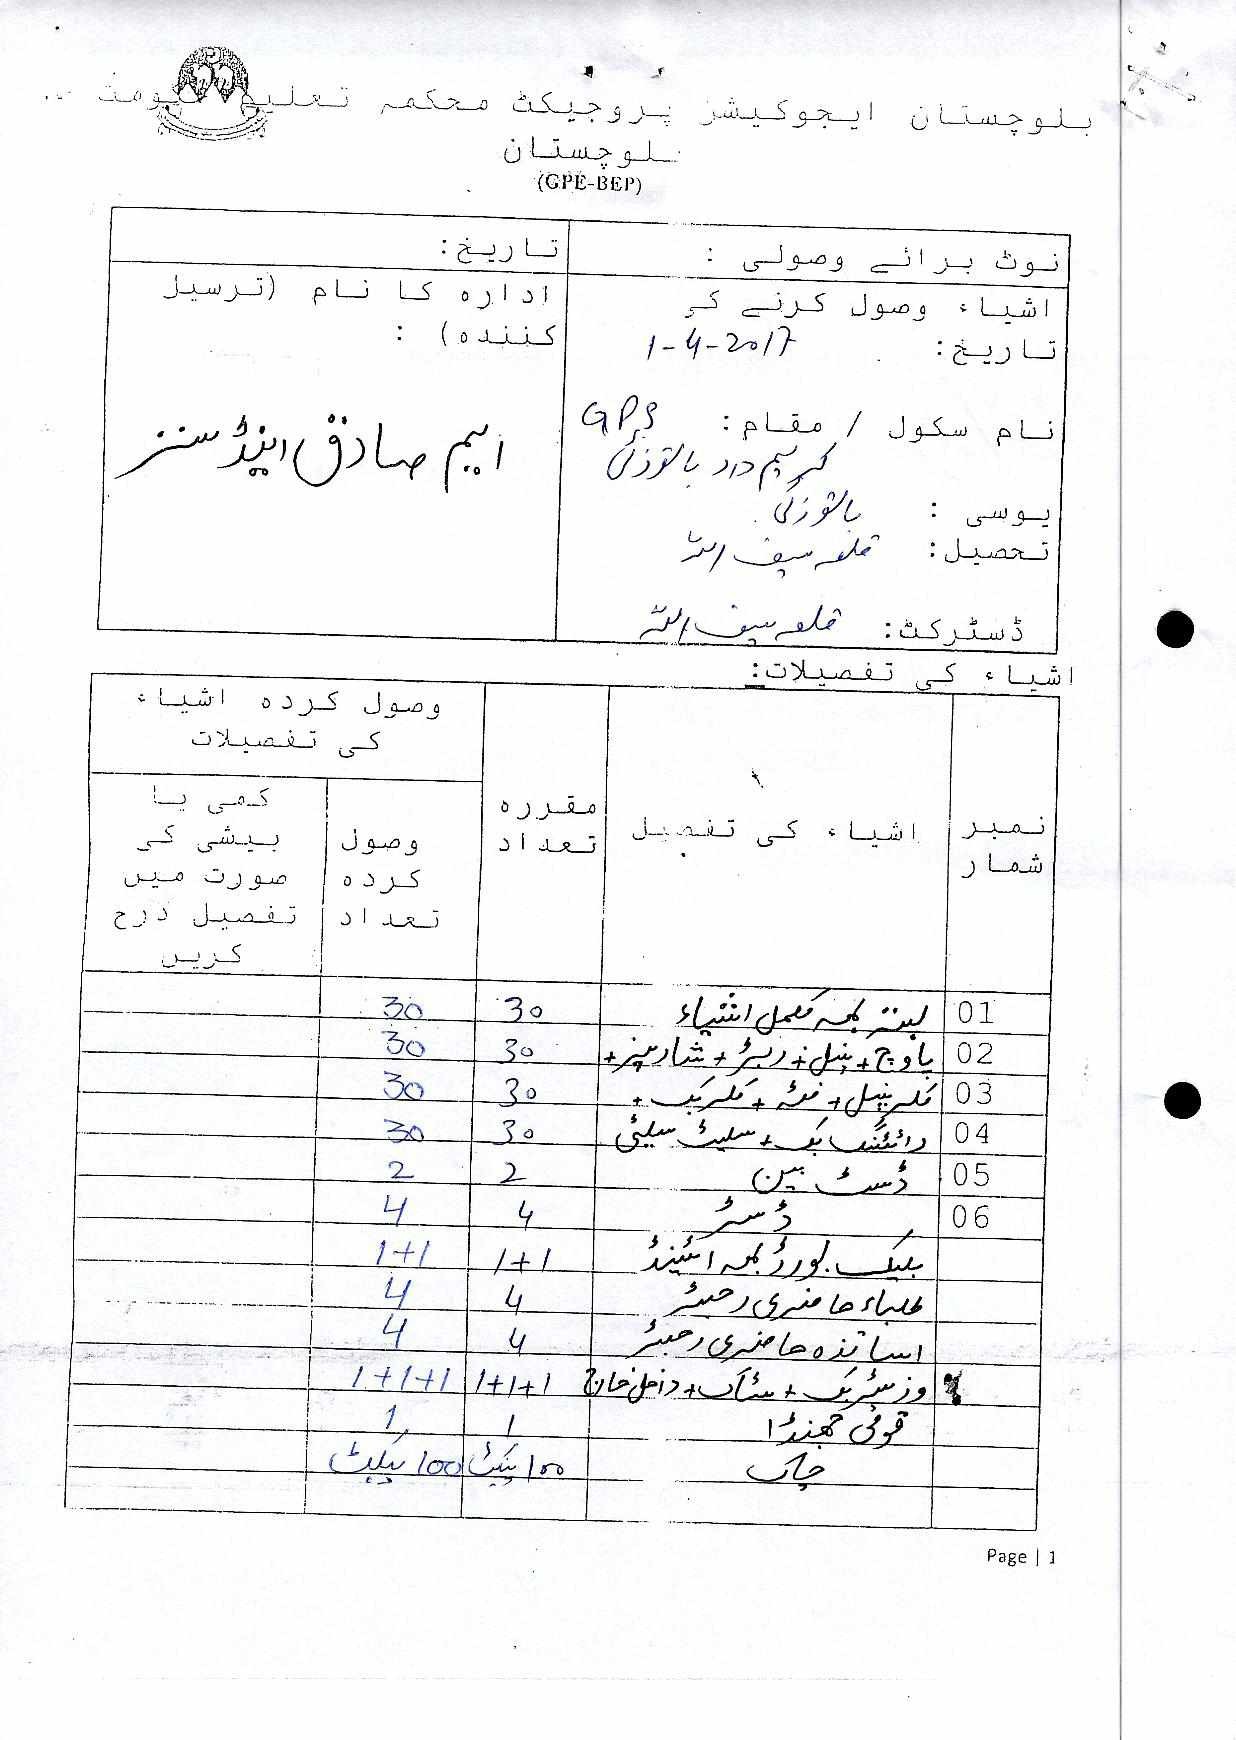 بلوچستان ایجوکیشن پروجیکٹ محکمہ تعلیم حکومت
بلوچستان
(GPE-BEP)
نوٹ برائے وصولی :
تاریخ:
اشیاء وصول کرنے کی
تاریخ: 1-4-2017
نام سکول / مقام: GPS
کریم داد باتوزئی
یوسی : باتوزئی
تحصیل: قلعہ سیف اللہ
ڈسٹرکٹ: قلعہ سیف اللہ
ادارہ کا نام (ترسیل
کنندہ) :
ایم صادق اینڈ سنز
اشیاء کی تفصیلات:
نمبر شمار
اشیاء کی تفصیل
مقررہ تعداد
وصول کردہ اشیاء کی تفصیلات
وصول کردہ تعداد
کمی یا بیشی کی صورت میں تفصیل درج کریں
01 بستہ بمعہ مکمل اشیاء 30 30
02 پاؤچ + پنسل + ربڑ + شارپنر + 30 30
03 کلر پنسل + فٹہ + کلر بک + 30 30
04 رائٹنگ بک + سلیٹ سلیٹی 30 30
05 ڈسٹ بین 2 2
06 ڈسٹر 4 4
بلیک بورڈ بمعہ اسٹینڈ 1+1 1+1
طلباء حاضری رجسٹر 4 4
اساتذہ حاضری رجسٹر 4 4
وزیٹر بک + سٹاک + داخل خارج 1+1+1 1+1+1
قومی جھنڈا 1 1
چاک 100 پیکٹ 100 پیکٹ
Page | 1